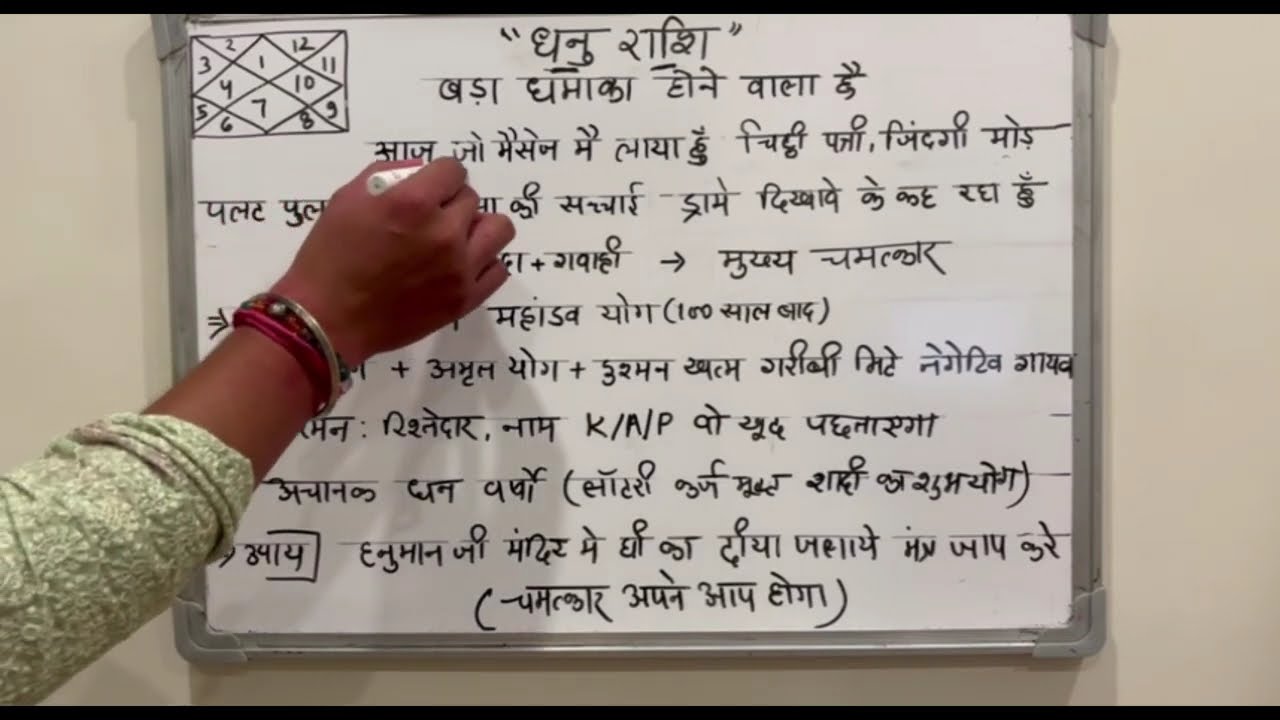 2 12
3 1 11
4 10
5 7 9
6 8
"धनु राशि"
बड़ा धमाका होने वाला है
आज जो मैसेज मै लाया हुँ चिट्ठी पत्री, जिंदगी मोड़
पलट की सच्चाई ड्रामे दिखावे के कह रहा हुँ
+ गवाही → मुख्य चमत्कार
⇒ महांडव योग (100 साल बाद)
+ अमृत योग + दुश्मन खत्म गरीबी मिटे नेगेटिव गायब
: रिश्तेदार, नाम K/A/P वो खुद पछताएगा
अचानक धन वर्षा (लॉटरी कर्ज मुक्त शादी का शुभयोग)
हनुमान जी मंदिर मे घी का दीया जलाये मंत्र जाप करे
(चमत्कार अपने आप होगा)